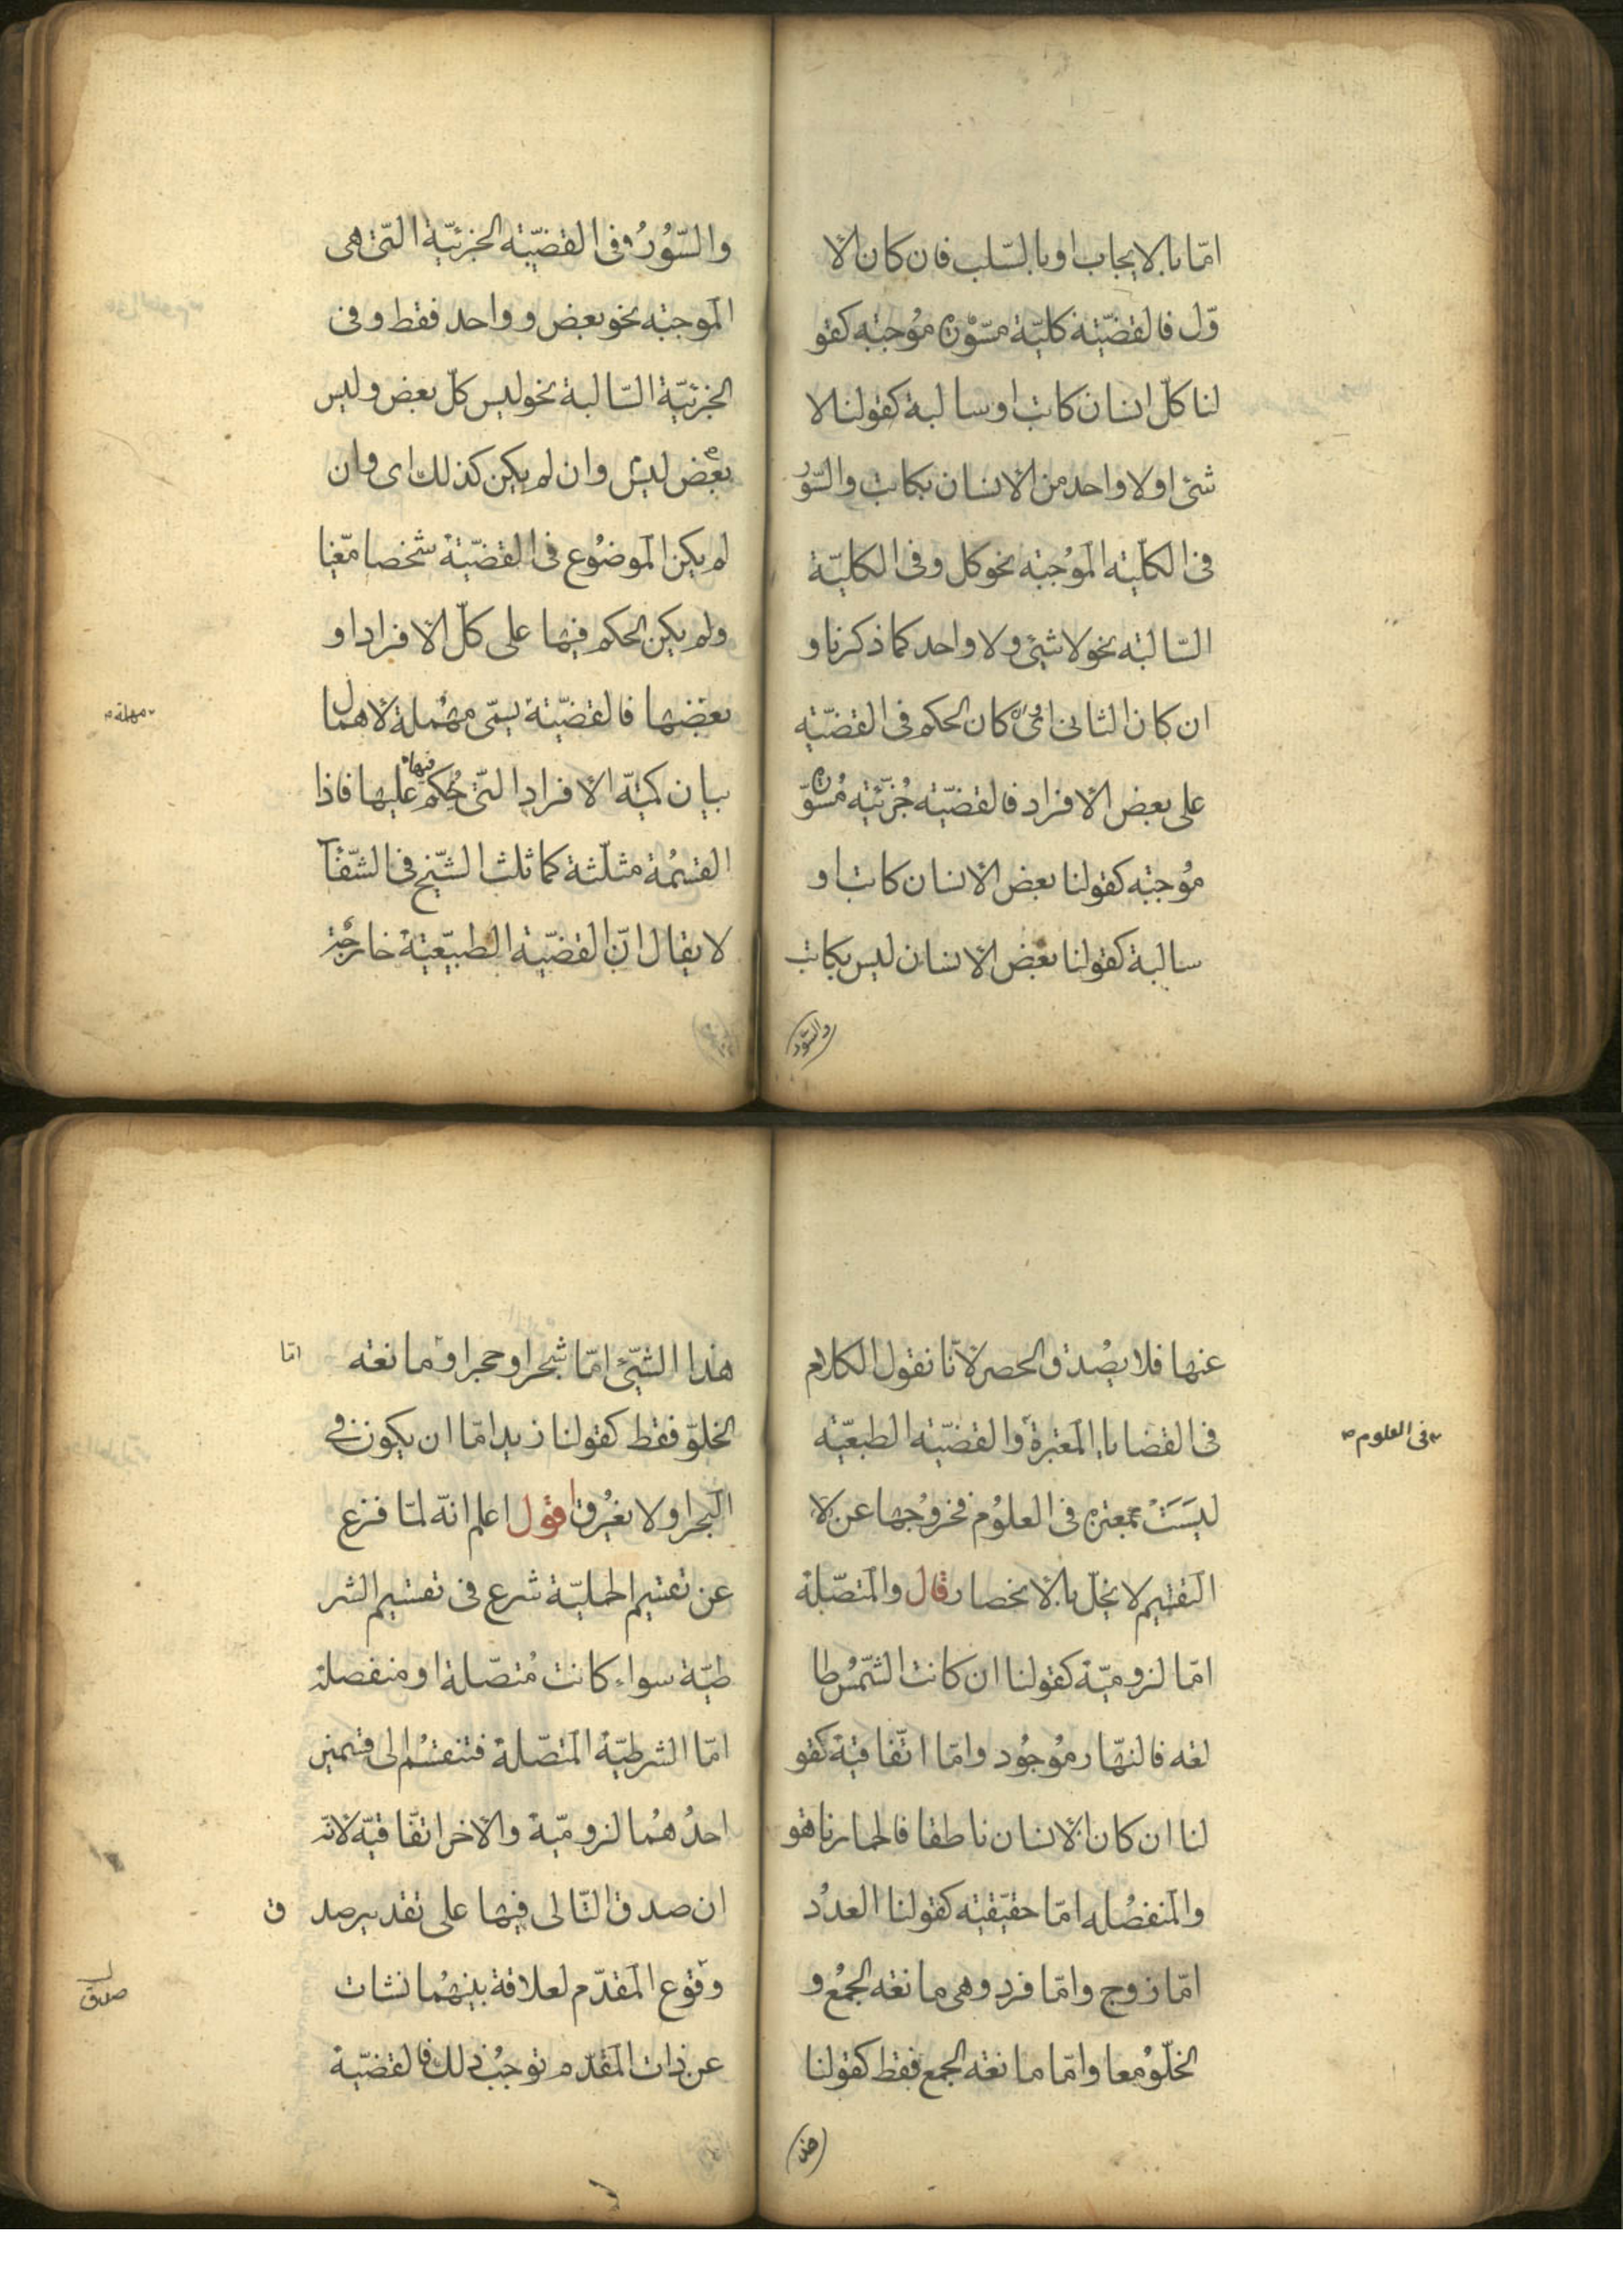 امّا بالايجاب او بالسّلب فان كان الأ
وّل فالقضيّة كليّة مسّورة موُجبة كقو
لنا كلّ انسان كاتب او سالبة كقولنا لا
شئ او لا واحد من الأنسان بكاتب والسّور
فى الكلّية الموُجبة نحو كل وفى الكليّة
السّالبة نحو لا شئ ولا واحد كما ذكرنا و
ان كان الثانى اى كان الحكم فى القضيّة
على بعض الأفراد فالقضيّة جُزئية مُسوّرة
موُجبة كقولنا بعض الأنسان كاتب او
سالبة كقولنا بعض الأنسان ليس بكاتب
والسّور
والسّوُرُ فى القضيّة الجزئيّة التّى هى
الموجبة نحو بعض و واحد فقط وفى
الجزئيّة السّالبة نحو ليس كلّ بعض وليس
بعض ليس وان لم يكن كذلك اى وان
لم يكن الموضوُع فى القضيّة شخصا معّينا
ولم يكن الحكم فيها على كلّ الأفراد او
بعضها فالقضيّة يسمّى مهُملة لأهمال
مهملة
بيان كميّة الأفراد التّى حُكم فيها عليها فاذا
القسمُة مثلّثة كما ثلث الشّيخ فى الشّفآ
لا يقال انّ القضيّة الطبيّعية خارجة
عنها فلا يصُدق الحصر لأنّا نقول الكلام
فى القضايا المعتبرة والقضيّة الطبعيّة
فى العلوم
ليسَتْ بمعتبرة فى العلوُم فخروُجها عن لا
التقسيم لا يخلّ بالأنحصار قال والمتصّلة
امّا لزوميّة كقولنا ان كانت الشّمسُ طا
لعة فالنهّار موُجوُد وامّا اتّفاقية كقو
لنا ان كان الأنسان ناطقا فالحمار ناهقو
والمنفصُلة امّا حقيّقية كقولنا العددُ
امّا زوج وامّا فرد وهى مانعة الجمُع و
الخلّو معا وامّا مانعة الجمع فقط كقولنا
هذا
هذا الشّئ امّا شجرا و حجرا و مانعة
امّا
الخلوّ فقط كقولنا زيد امّا ان يكون فى
البحر او لا يغُرق اقول اعلم انّه لمّا فرغ
عن تقسيم الحمليّة شرع فى تقسيم الشر
طيّة سواء كانت مُتصّلة او منفصلة
امّا الشرطيّة المتصّلة فتنقسُم الى قسمين
احدُهمُا لزوميّة والأخر اتفّاقيّة لأنّه
ان صدق التّالى فيها على تقدير صد ق
وقوع المقدّم لعلاقة بينهمُا نشات
صدق
عن ذات المقدّم توجبُ ذلك فالقضيّة